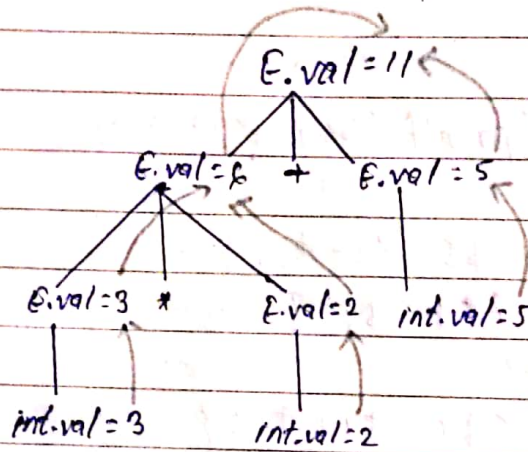 E.val = 11
E.val = 6 + E.val = 5
E.val = 3 * E.val = 2 int.val = 5
int.val = 3 int.val = 2